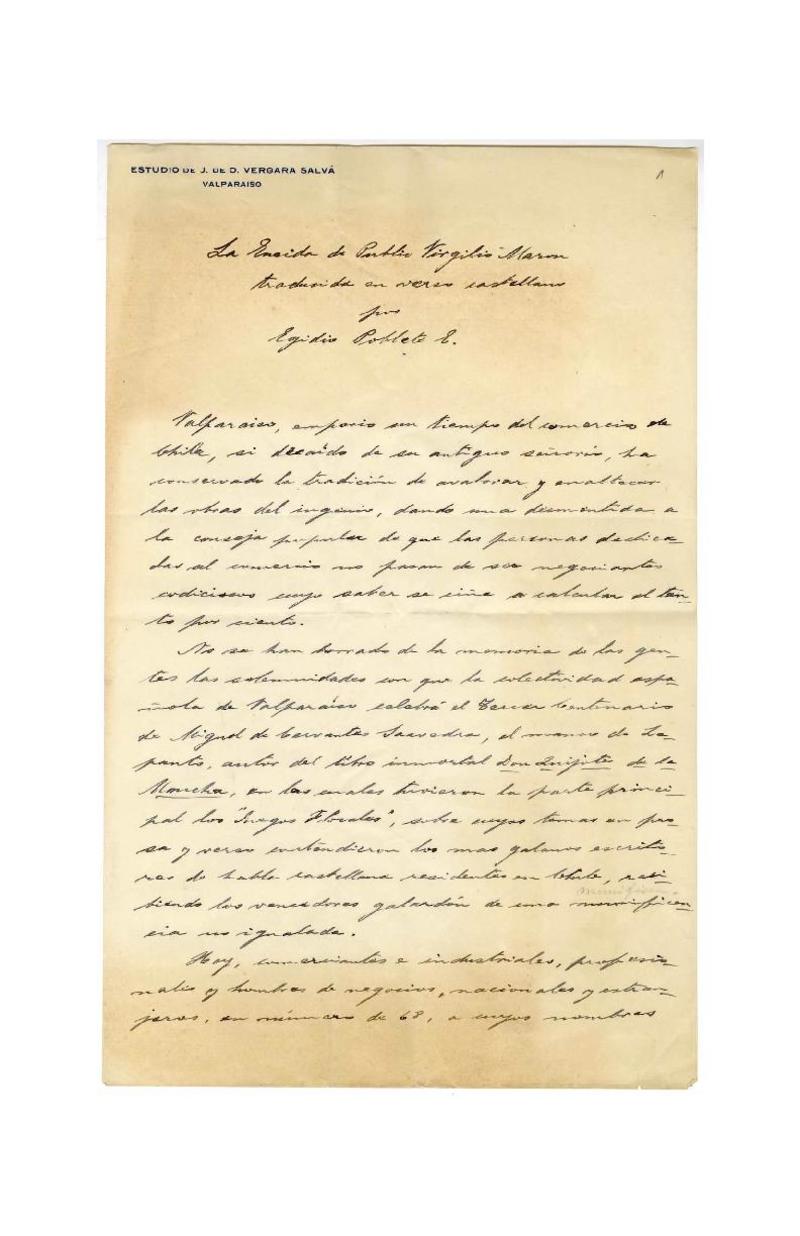 ESTUDIO DE J. DE D. VERGARA SALVÁ
VALPARAISO
1
La Eneida de Publio Virgilio Maron
traducida en verso castellano
por
Egidio Poblete E.
Valparaiso, emporio un tiempo del comercio de
Chile, si decaído de su antiguo señorío, ha
conservado la tradición de avalorar y enaltecer
las obras del ingenio, dando una desmentida a
la conseja popular de que las personas dedica-
das al comercio no pasan de ser negociantes
codiciosos cuyo saber se ciñe a calcular el tan-
to por ciento.
No se han borrado de la memoria de las gen-
tes las solemnidades con que la colectividad espa-
ñola de Valparaíso celebró el Tercer Centenario
de Miguel de Cervantes Saavedra, el manco de Le-
panto, autor del libro inmortal Don Quijote de la
Mancha, en las cuales tuvieron la parte princi-
pal los "Juegos Florales", sobre cuyos temas en pro-
sa y verso contendieron los mas galanos escrito-
res de habla castellana residentes en Chile, reci-
biendo los vencedores galardón de una munificen-
cia no igualada.
Hoy, comerciantes e industriales, profesio-
nales y hombres de negocios, nacionales y extran-
jeros, en número de 68, a cuyos nombres